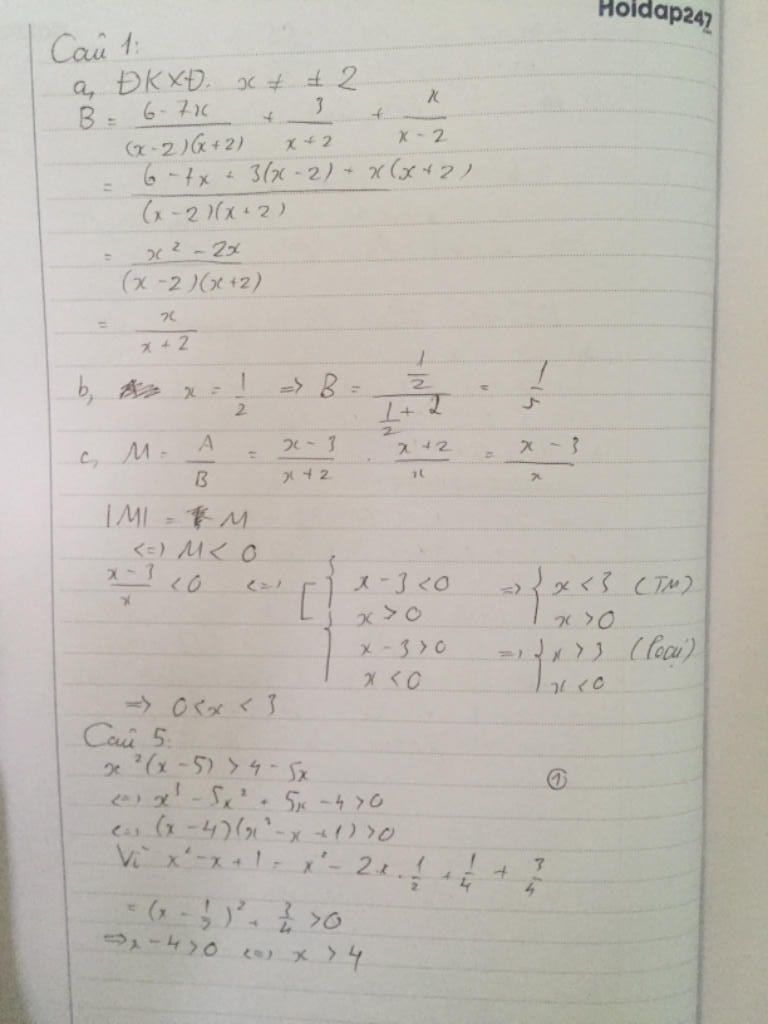 Hoidap247
Câu 1:
a, ĐKXĐ. x ≠ ± 2
B = (6 - 7x)/((x-2)(x+2)) + 3/(x+2) + x/(x-2)
= (6 - 7x + 3(x-2) + x(x+2))/((x-2)(x+2))
= (x² - 2x)/((x-2)(x+2))
= x/(x+2)
b, x = 1/2 => B = (1/2)/(1/2 + 2) = 1/5
c, M = A/B = (x-3)/(x+2) . (x+2)/x = (x-3)/x
|M| = M
<=> M < 0
(x-3)/x < 0 <=> [ { x - 3 < 0 => { x < 3 (TM)
x > 0 x > 0
{ x - 3 > 0 => { x > 3 (loại)
x < 0 x < 0
=> 0 < x < 3
Câu 5:
x²(x-5) > 4 - 5x ①
<=> x³ - 5x² + 5x - 4 > 0
<=> (x-4)(x² - x + 1) > 0
Vì x² - x + 1 = x² - 2x . 1/2 + 1/4 + 3/4
= (x - 1/2)² + 3/4 > 0
=> x - 4 > 0 <=> x > 4